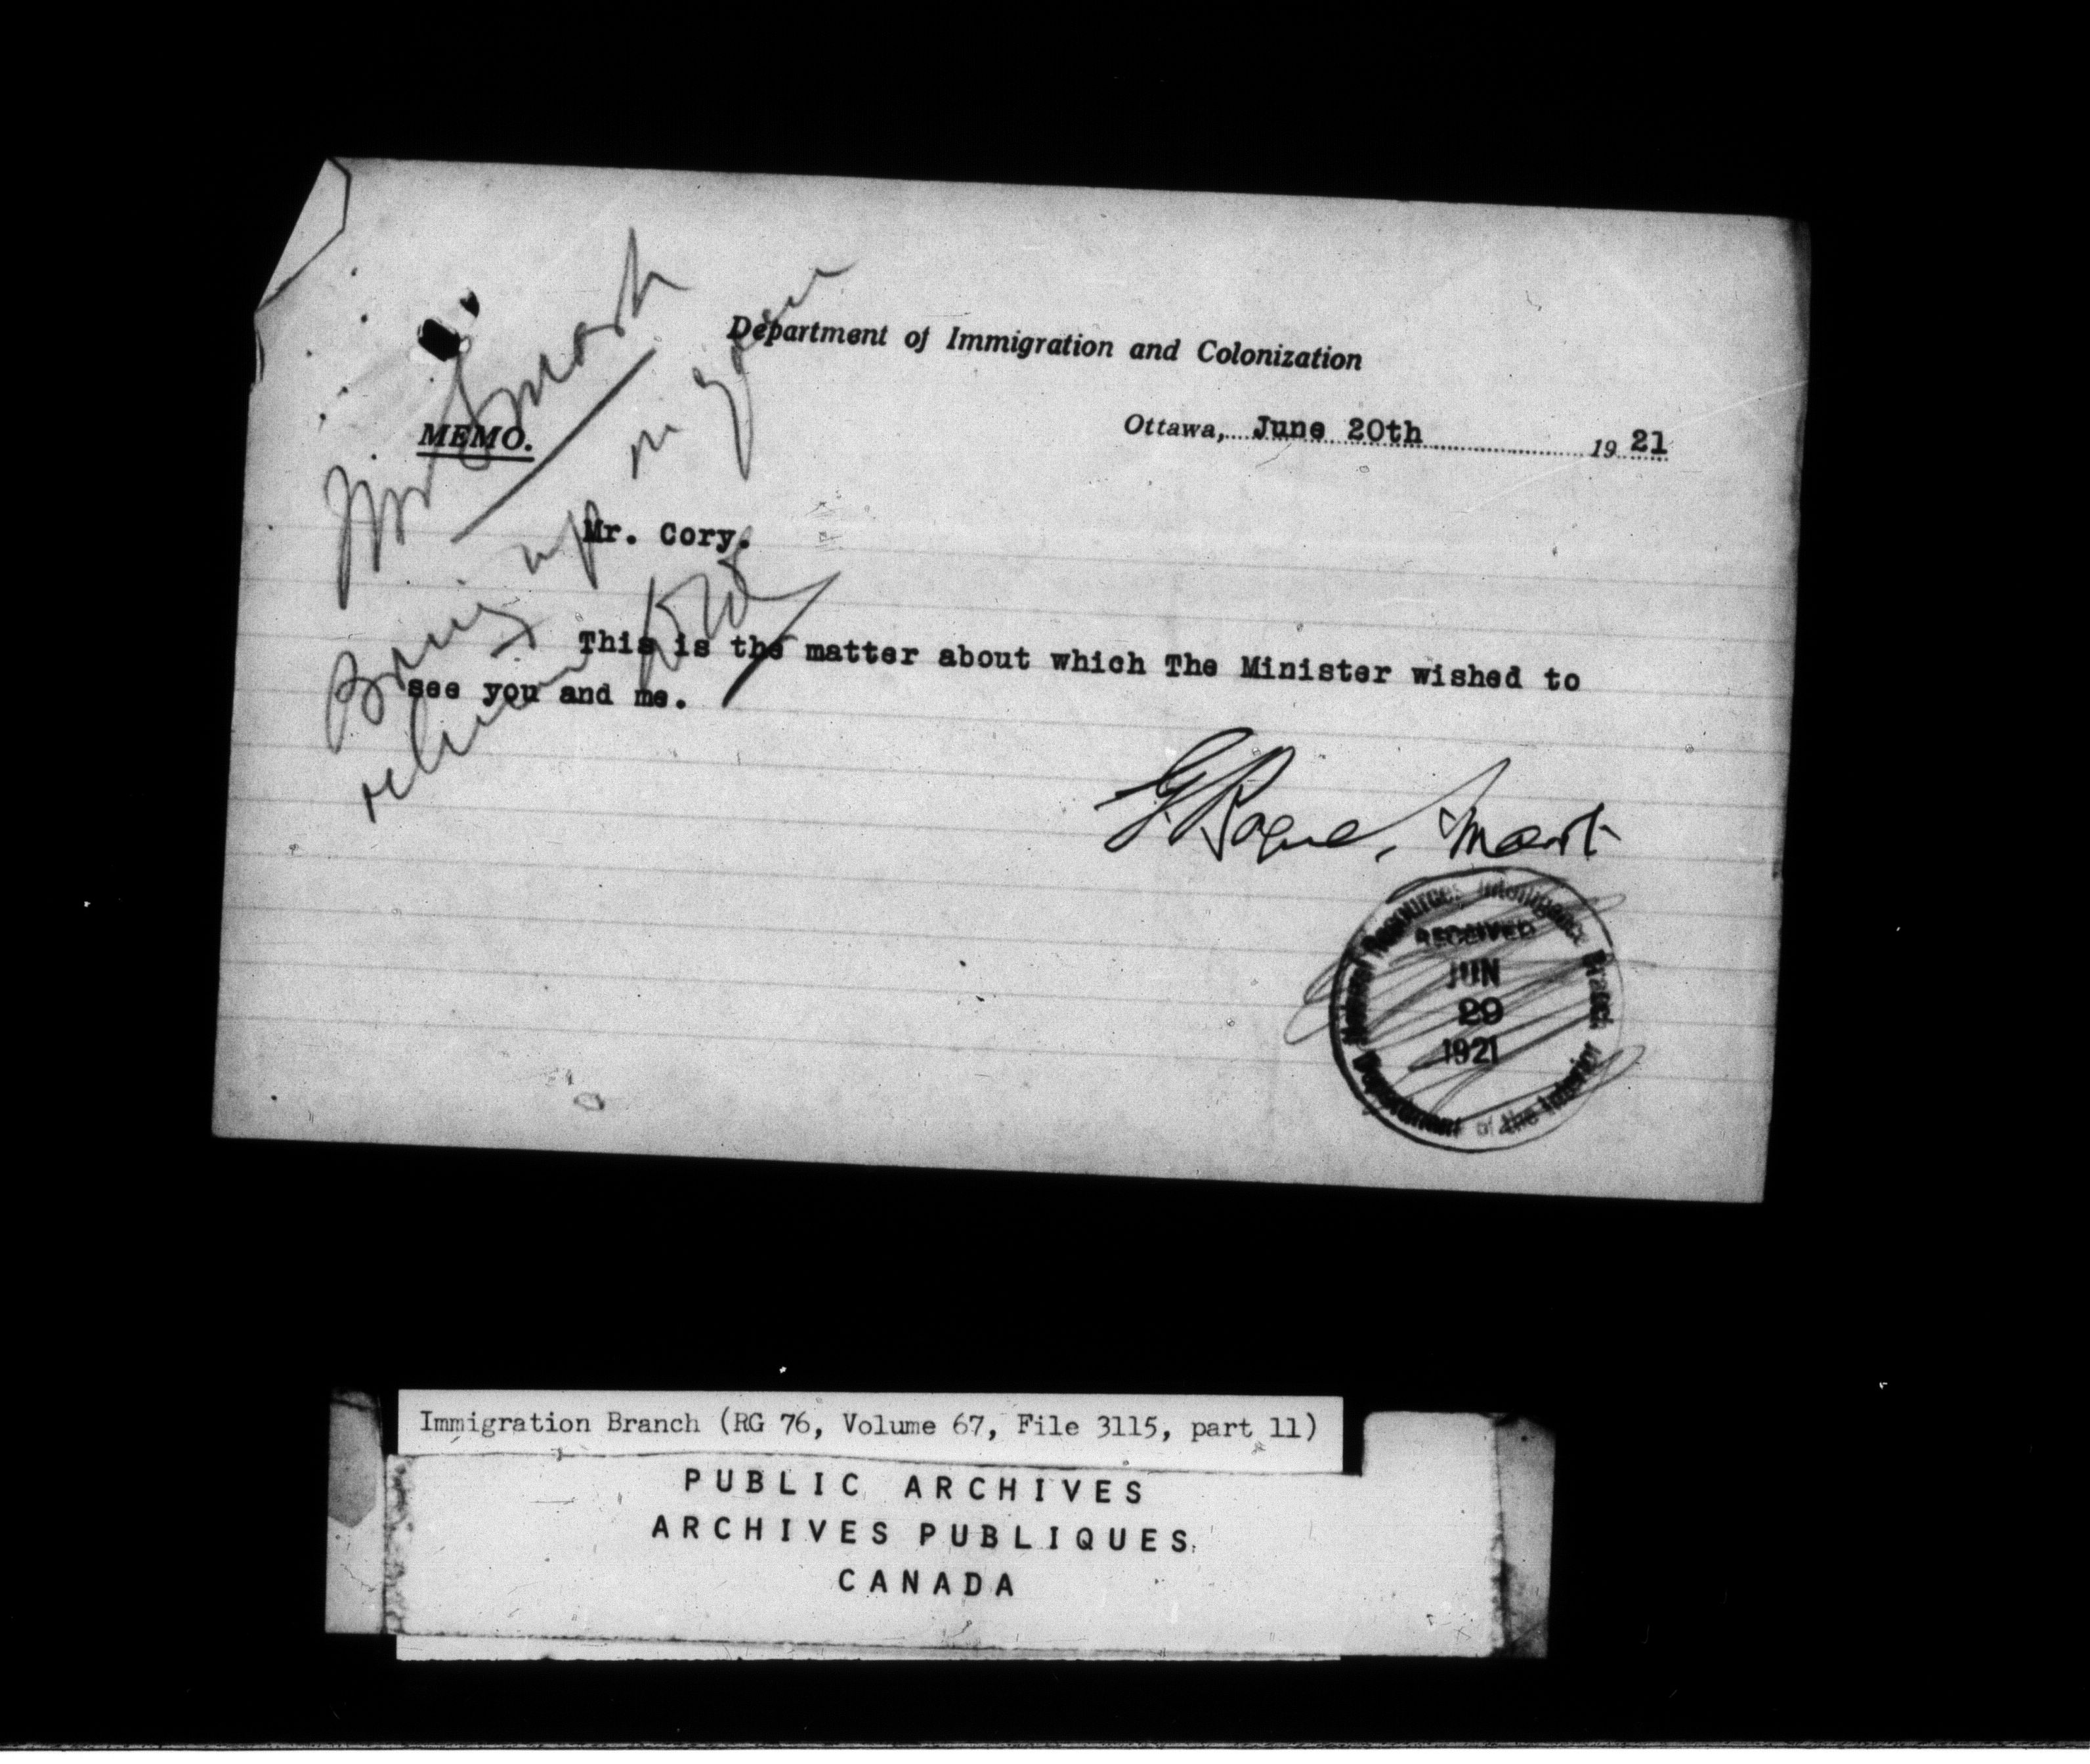 Department of Immigration and Colonization
Ottawa, June 20th 19 21
MEMO.
Mr Smart
Bring up on your
return
Mr. Cory.
This is the matter about which The Minister wished to
see you and me.
G. Bogue Smart
Natural Resources Intelligence Branch
RECEIVED
JUN
29
1921
Department of the Interior
Immigration Branch (RG 76, Volume 67, File 3115, part 11)
PUBLIC ARCHIVES
ARCHIVES PUBLIQUES
CANADA